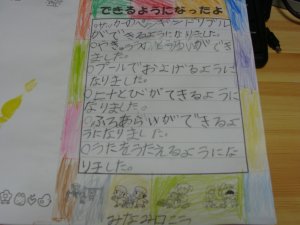 できるようになったよ
○サッカーのハンドリブル
ができるようになりました。
○やきゅう
ました。
○プールでおよげるように
なりました。
○二十とびができるように
なりました。
○ふろあらいができるよ
うになりました。
○うたをうたえるようにな
りました。